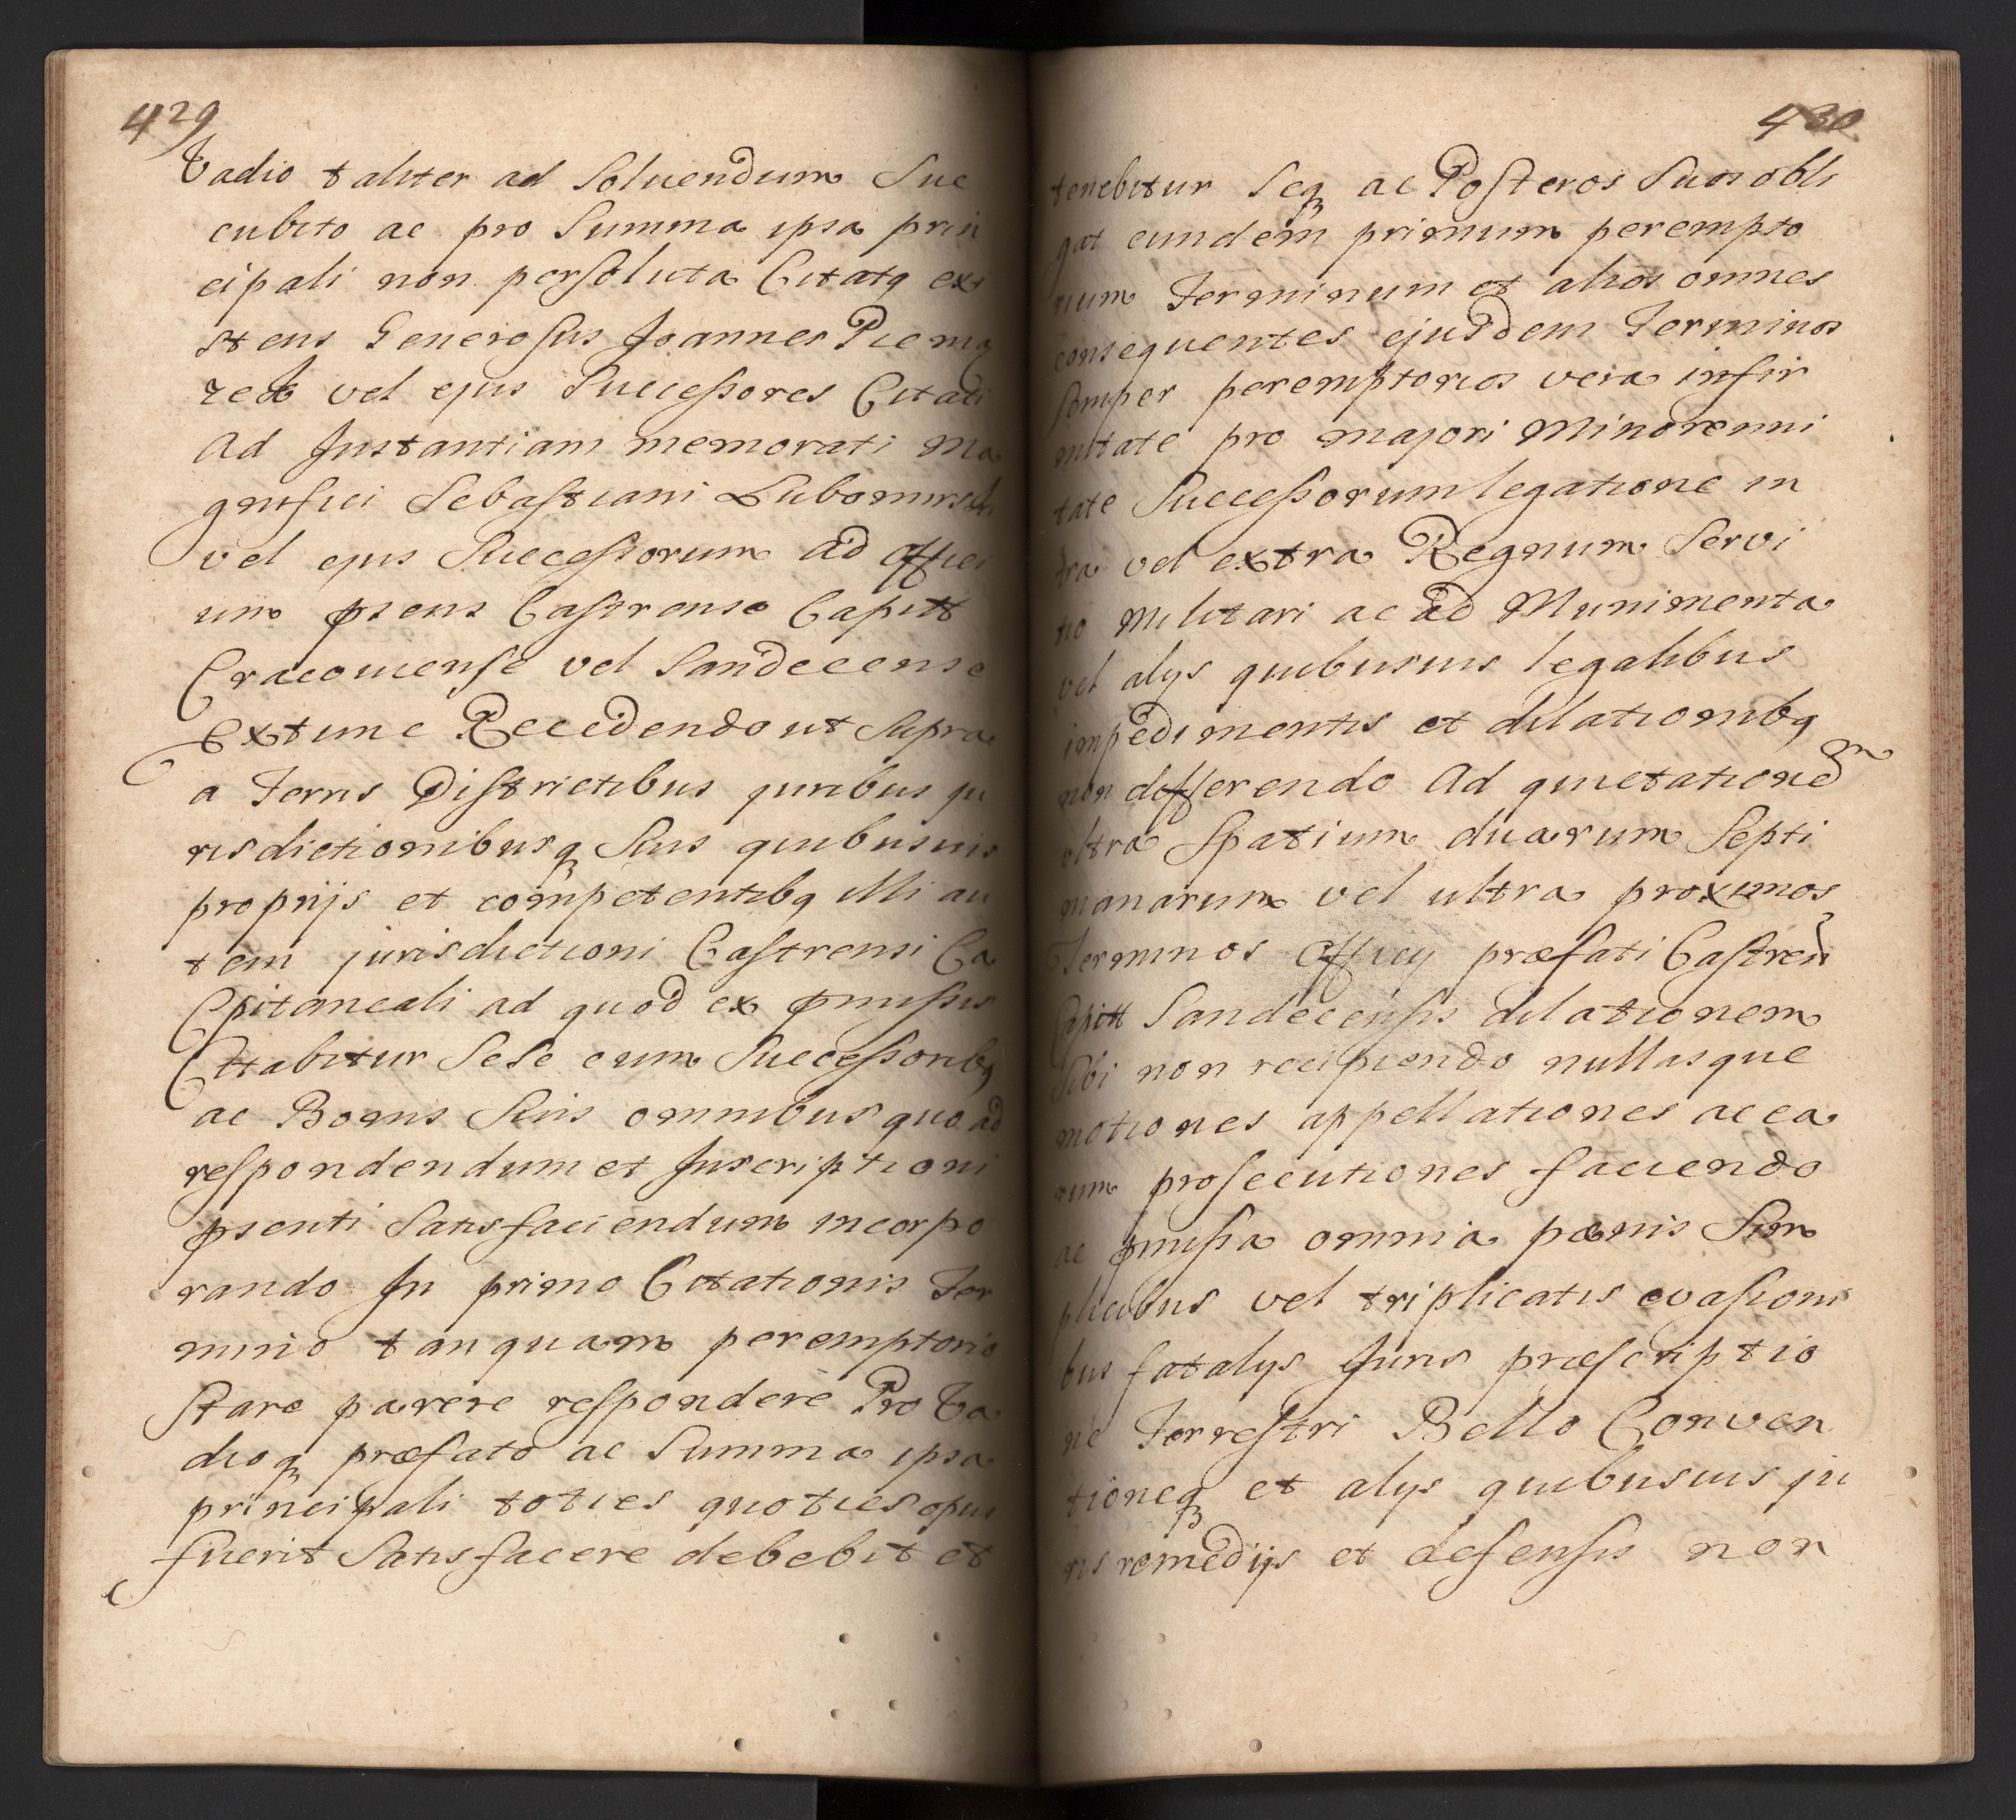 429
Vadio taliter ad Soluendum Suc
cubito ac pro Summa ipsa prin
cipali non persoluta Citatq exi
stens Generosus Joannes Piemą
zek vel ejus Successores Citati
Ad Instantiam memorati Ma
gnifici Sebastiani Lubomirski
vel ejus Successorum ad offici
um pſens Castrense Capitt
Cracouiense vel Sandecense
Extunc Recedendo ut Supra
a Terris Districtibus juribus ju
risdictionibusq Suis quibusuis
proprijs et competentibq Illi au
tem jurisdictioni Castrensi Ca
Cpitaneali ad quod ex pmissis
Cittabitur Sese cum Successoribq
ac Bonis Suis omnibus quoad
respondendum et Inscriptioni
psenti Satisfaciendum incorpo
rando In primo Citationis Ter
mino tanquam peremptorio
Stare parere respondere Pro Va
dioq præfato ac Summa ipsa
principali toties quoties opus
fuerit Satisfacere debebit et
430
tenebitur Seq ac Posteros Suos obli
gat eundem primum perempto
rium Terminum et alios omnes
consequentes ejusdem Terminos
Semper peremptorios vera infir
mitate pro majori Minorenni
tate Successorum legatione in
tra vel extra Regnum Servi
tio Militari ac ad Munimenta
vel alys quibusuis legalibus
impedimentis et dilationibq
non differendo Ad quietationem
ultra Spatium duarum Septi
manarum vel ultra proximos
Terminos Officy præfati Castren
Capitt Sandecensis dilationem
Sibi non recipiendo nullasque
motiones appellationes ac ea
rum prosecutiones faciendo
ac pmissa omnia pœnis Sim
plicibus vel triplicatis evasioni
bus fatalys Juris præscriptio
ne Terrestri Bello Conven
tioneq et alys quibusuis ju
ris remedijs et defensis non